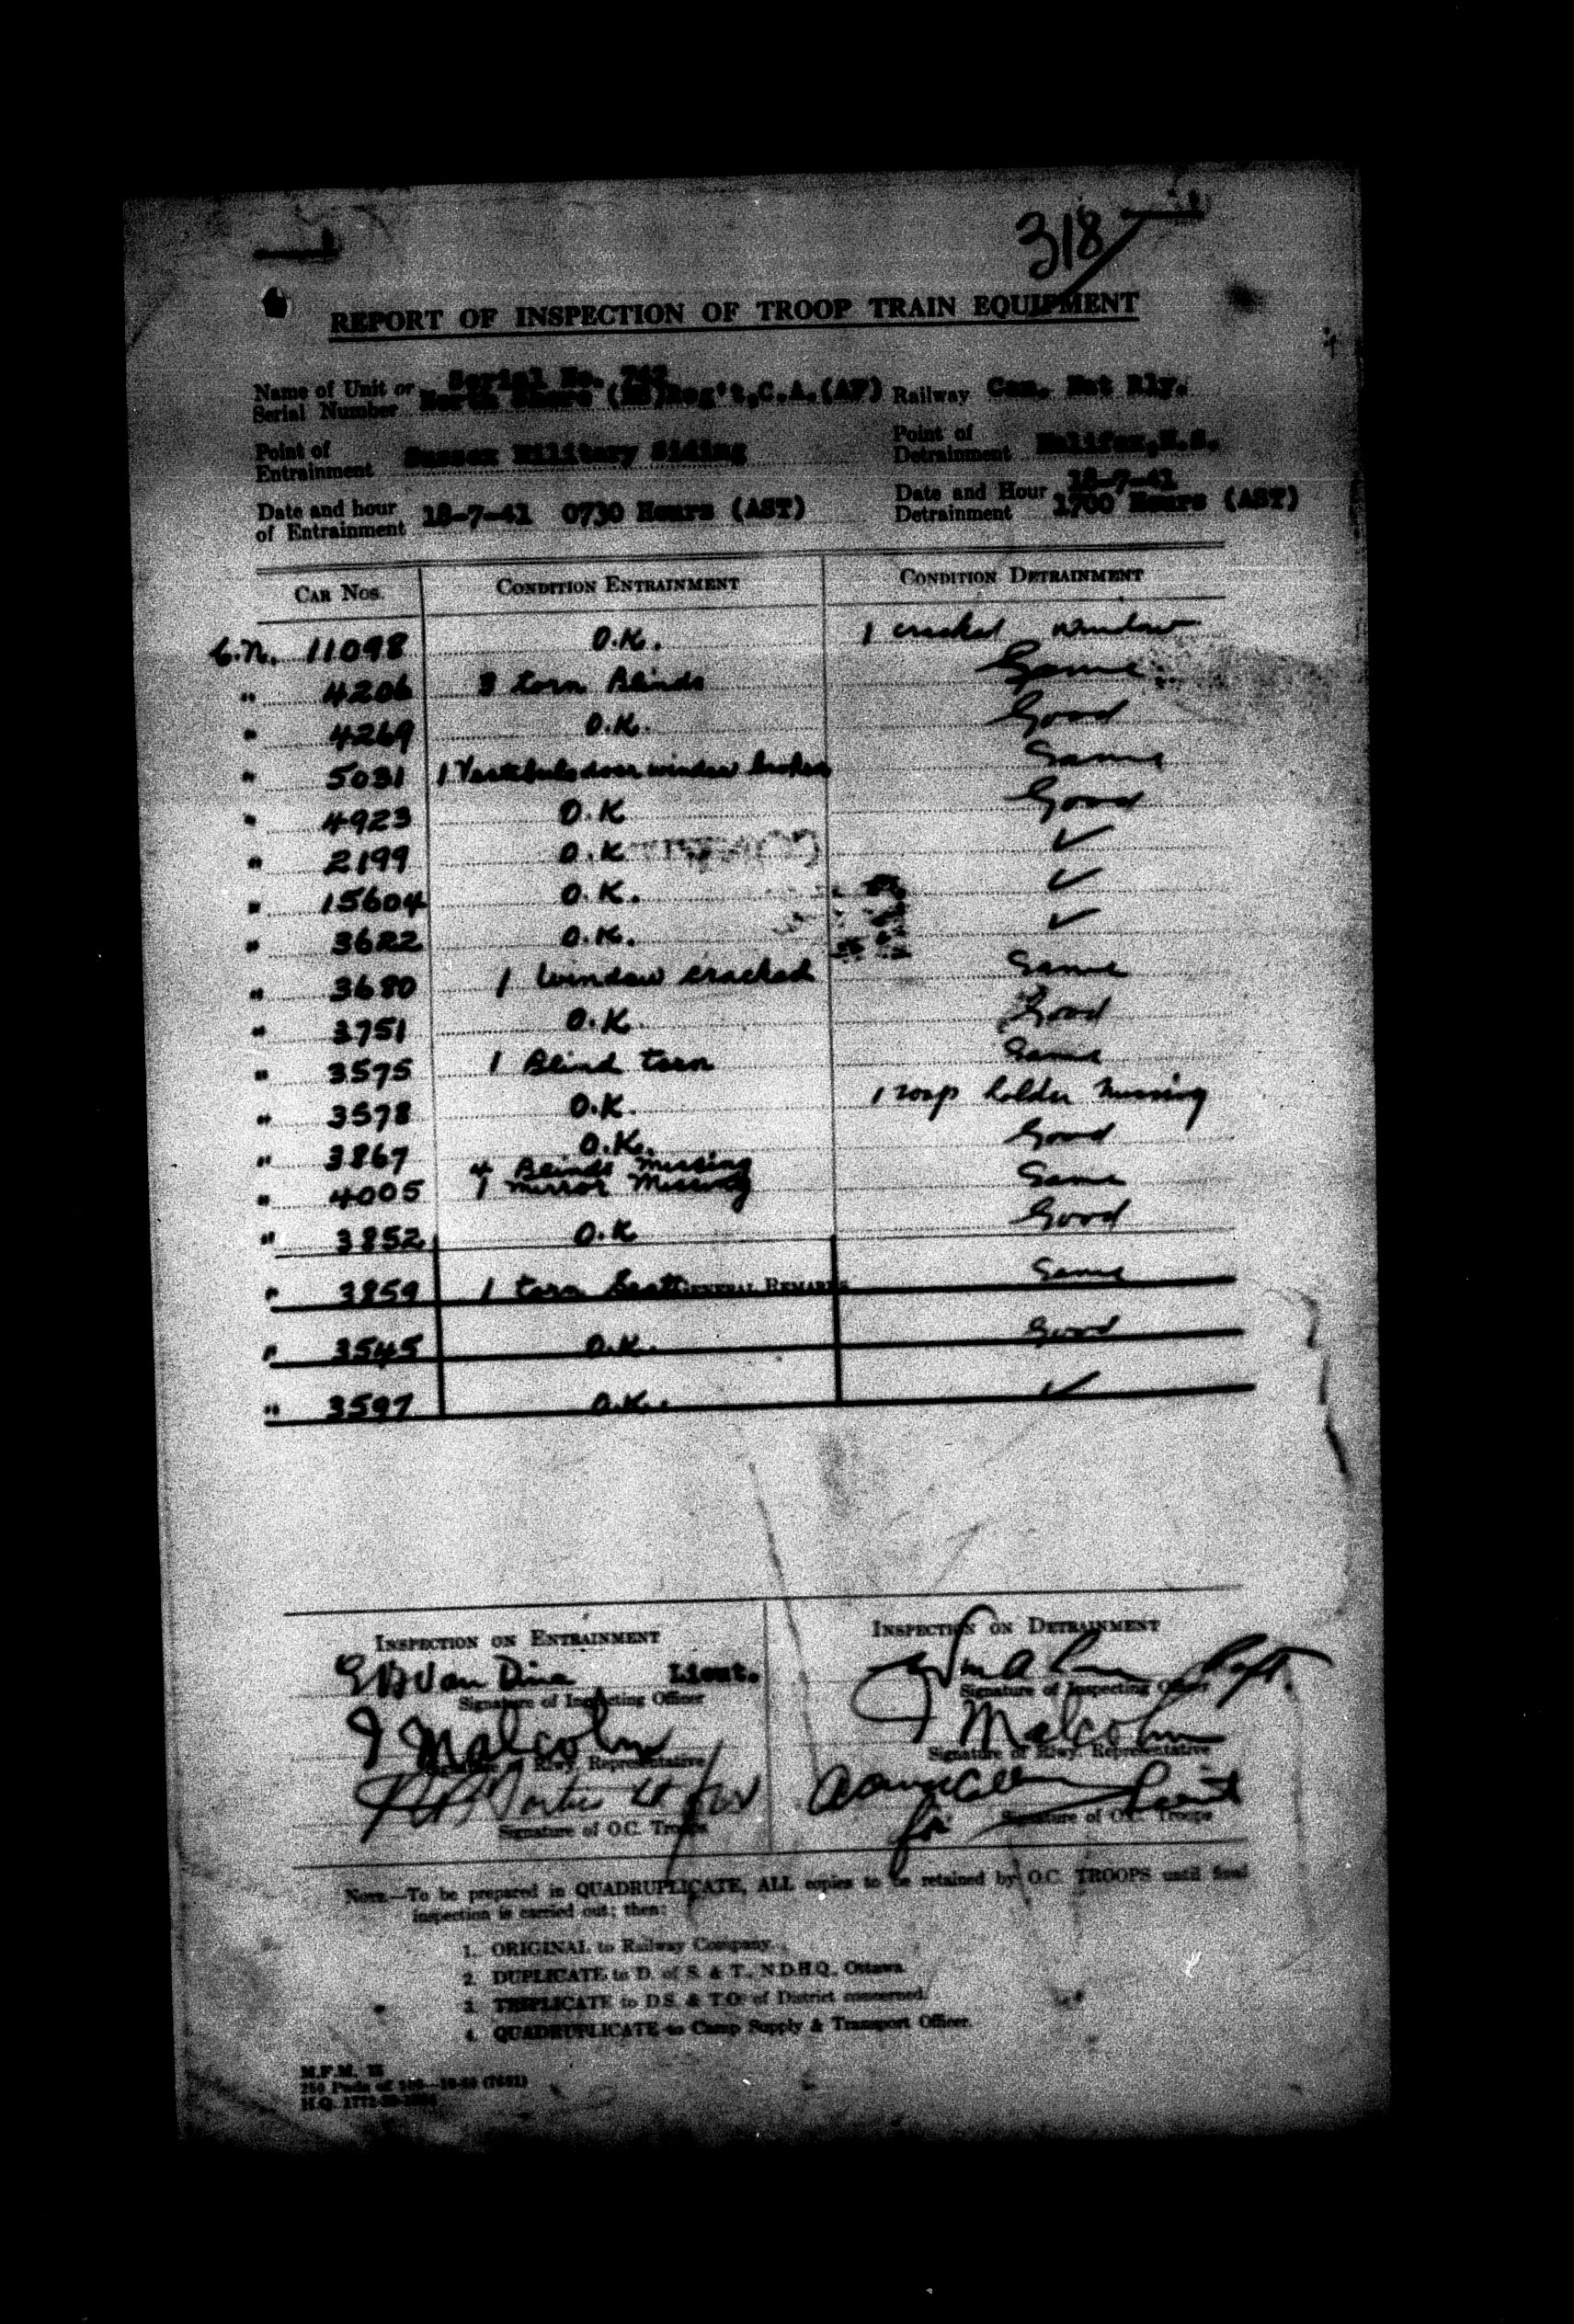 318
REPORT OF INSPECTION OF TROOP TRAIN EQUIPMENT
Serial No.
Name of Unit or Serial Number North Shore (NB)Reg't,C.A.(AF) Railway Can. Nat Rly.
Point of Entrainment Sussex Military Siding Point of Detrainment Halifax,N.S.
Date and hour of Entrainment 18-7-41 0730 Hours (AST) Date and Hour Detrainment 18-7-41 1700 Hours (AST)
CAR NOS. CONDITION ENTRAINMENT CONDITION DETRAINMENT
C.N. 11098 O.K. 1 cracked window
" 4206 3 torn Blinds Same
" 4269 O.K. Good
" 5031 1 Vestibule door window broken Same
" 4923 O.K Good
" 2199 O.K ✓
" 15604 O.K. ✓
" 3622 O.K. ✓
" 3680 1 Window cracked Same
" 3751 O.K. Good
" 3575 1 Blind torn Same
" 3578 O.K. 1 soap holder missing
" 3867 O.K. Good
" 4005 4 Blinds Missing 1 mirror Missing Same
" 3852 O.K Good
GENERAL REMARKS
" 3859 1 torn Seat Same
" 3545 O.K. Good
" 3597 O.K. ✓
INSPECTION ON ENTRAINMENT INSPECTION ON DETRAINMENT
Van Dine Lieut. Capt.
Signature of Inspecting Officer Signature of Inspecting Officer
J Malcolm J Malcolm
Signature of Rlwy. Representative Signature of Rlwy. Representative
Lt for Lieut
Signature of O.C. Troops for Signature of O.C. Troops
NOTE.—To be prepared in QUADRUPLICATE, ALL copies to be retained by O.C. TROOPS until final
inspection is carried out; then:
1. ORIGINAL to Railway Company.
2. DUPLICATE to D. of S. & T., N.D.H.Q., Ottawa.
3. TRIPLICATE to D.S. & T.O. of District concerned.
4. QUADRUPLICATE to Camp Supply & Transport Officer.
M.F.M.
250 Pads of
H.Q. 1772